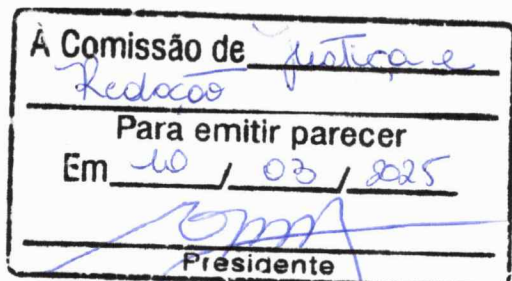 À Comissão de Justiça e
Redação
Para emitir parecer
Em 10 / 03 / 2025
Presidente